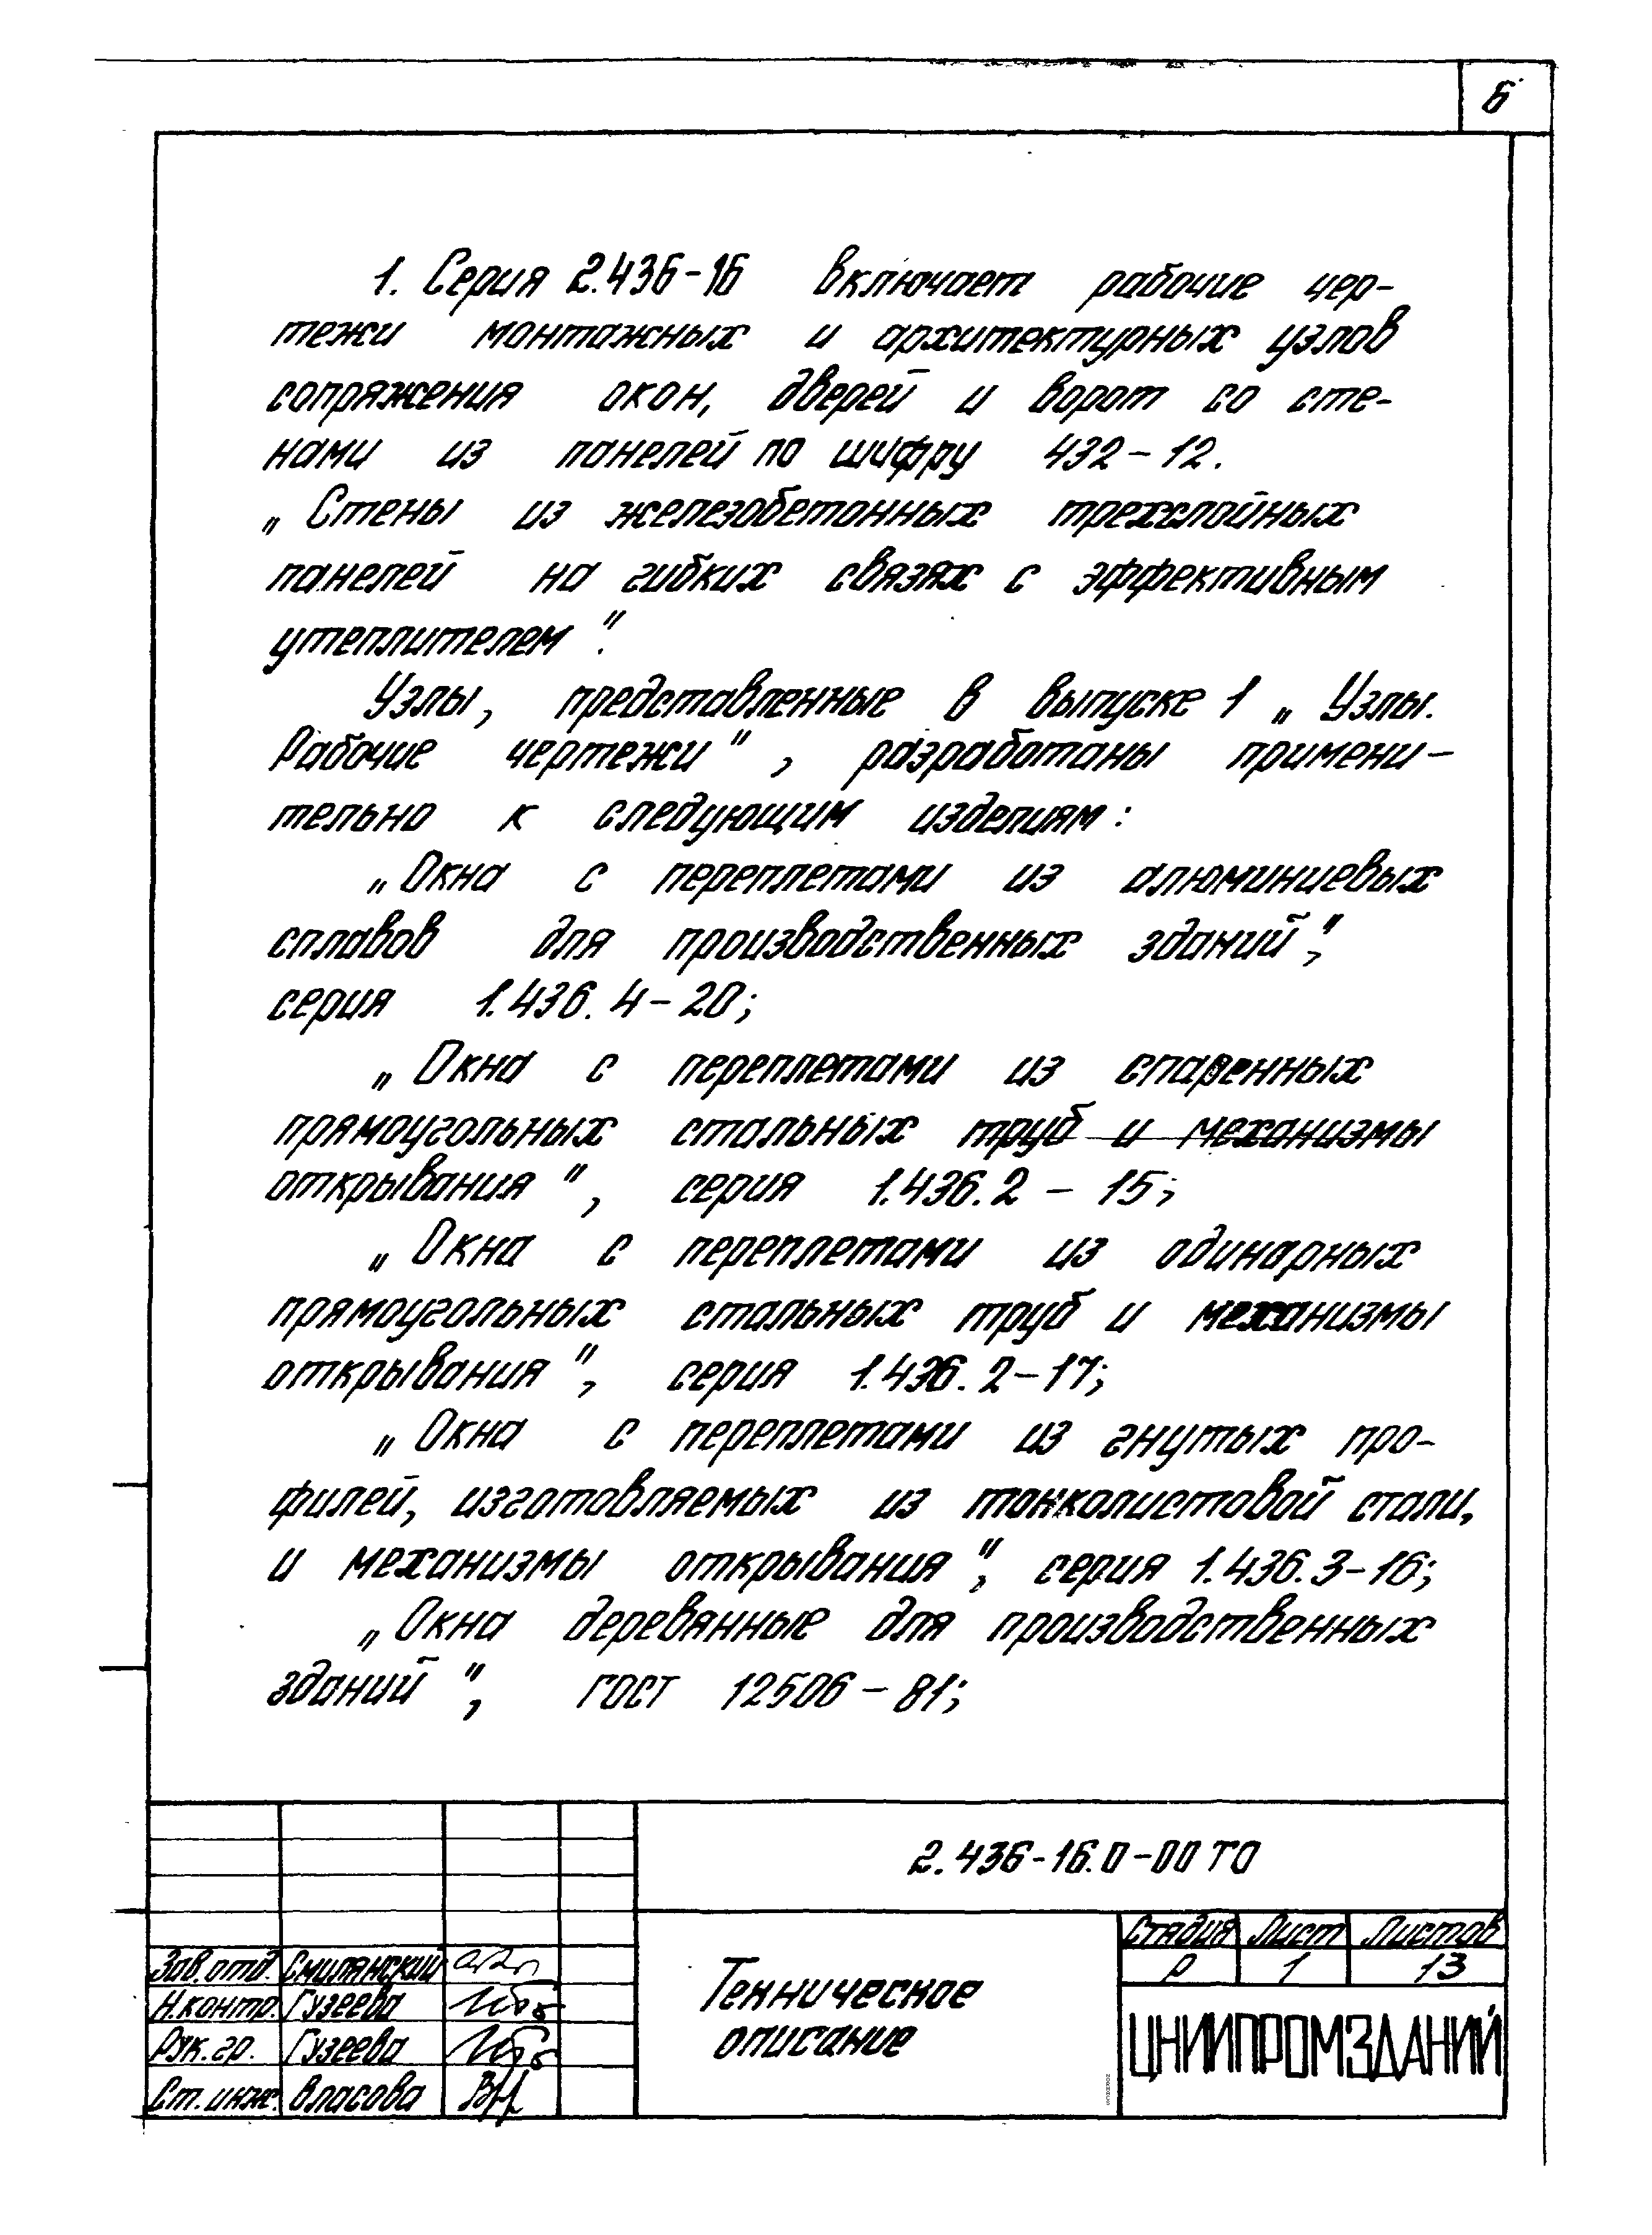 6
1. Серия 2.436-16 включает рабочие чер-
тежи монтажных и архитектурных узлов
сопряжения окон, дверей и ворот со сте-
нами из панелей по шифру 432-12.
„Стены из железобетонных трехслойных
панелей на гибких связях с эффективным
утеплителем".
Узлы, представленные в выпуске 1 „Узлы.
Рабочие чертежи", разработаны примени-
тельно к следующим изделиям:
„Окна с переплетами из алюминиевых
сплавов для производственных зданий",
серия 1.436.4-20;
„Окна с переплетами из спаренных
прямоугольных стальных труб и механизмы
открывания", серия 1.436.2-15;
„Окна с переплетами из одинарных
прямоугольных стальных труб и механизмы
открывания", серия 1.436.2-17;
„Окна с переплетами из гнутых про-
филей, изготовляемых из тонколистовой стали,
и механизмы открывания", серия 1.436.3-16;
„Окна деревянные для производственных
зданий", ГОСТ 12506-81;
2.436-16.0-00 ТО
Зав.отд. Смилянский
Н.контр. Гузеева
Рук.гр. Гузеева
Ст.инж. Власова
Техническое
описание
Стадия Лист Листов
Р 1 13
ЦНИИПРОМЗДАНИЙ